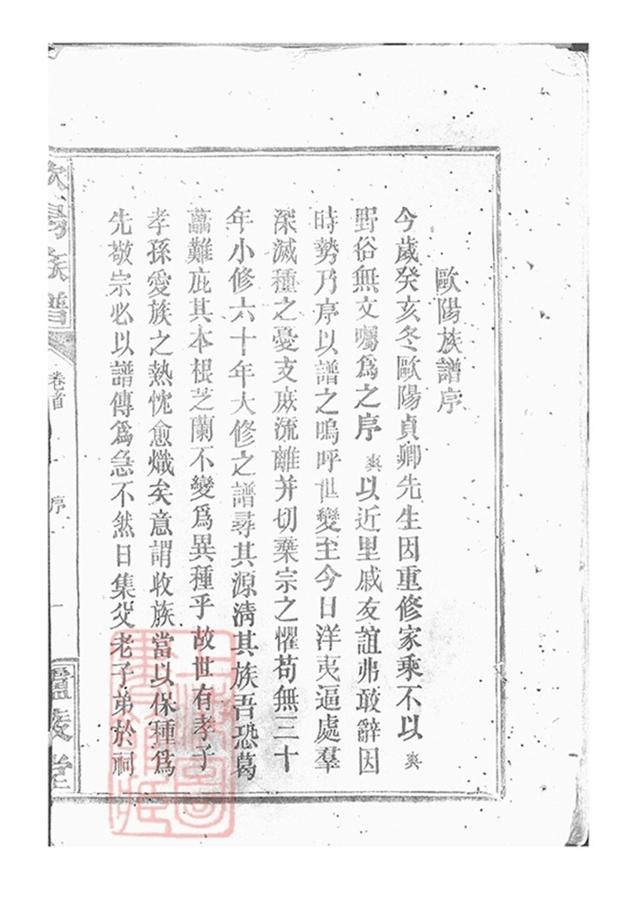 歐陽族譜序
今歲癸亥冬歐陽貞卿先生因重修家乘不以奭
野俗無文囑爲之序奭以近里戚友誼弗敢辭因
時勢乃序以譜之嗚呼世變至今日洋夷逼處羣
深滅種之憂支庶流離并切棄宗之懼苟無三十
年小修六十年大修之譜尋其源清其族吾恐葛
藟難庇其本根芝蘭不變爲異種乎故世有孝子
孝孫愛族之熱忱愈熾矣意謂收族當以保種爲
先敬宗必以譜傳爲急不然日集父老子弟於祠
歐陽族譜
卷首
序
一
廬陵堂